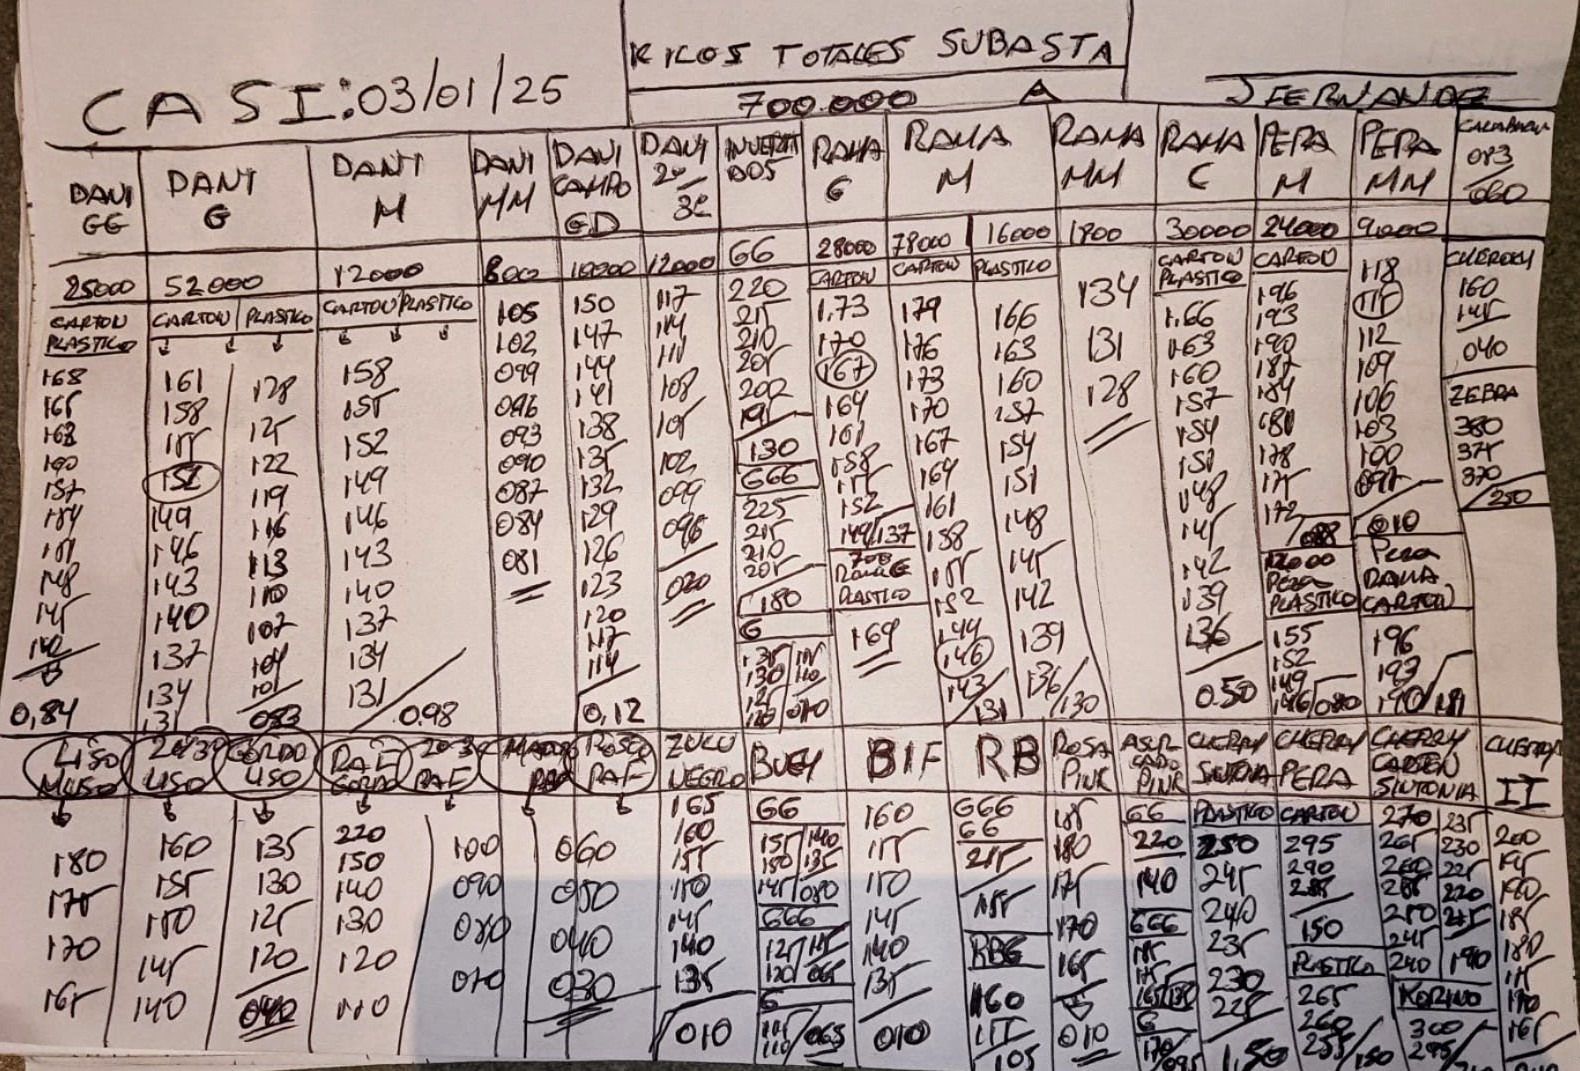 KILOS TOTALES SUBASTA
CASI: 03/01/25
700.000 A
J FERNANDEZ
DANI GG
DANI G
DANI M
DANI MM
DANI CAMPO GD
DANI
RAMA G
RAMA M
RAMA MM
RAMA C
PERA M
PERA MM
060
25000
52000
12000
10000
12000
GG
28000
78000
16000
1900
30000
24000
9000
CARTON PLASTICO
CARTON
PLASTICO
CARTON
PLASTICO
CARTON
CARTON
PLASTICO
CARTON PLASTICO
CARTON
CHERRY
168
165
157
148
145
0,84
161
158
155
152
149
146
143
140
137
134
131
128
125
122
119
116
113
110
107
104
101
083
158
155
152
149
146
143
140
137
134
131
0.98
105
102
099
096
093
090
087
084
081
150
147
144
141
138
135
132
129
126
123
120
117
114
0,12
117
114
111
108
105
102
099
096
020
220
215
210
205
200
195
130
GGG
225
215
210
205
180
G
1.73
170
167
164
161
158
155
152
149/137
RAMA G
PLASTICO
169
179
176
173
170
167
164
161
158
155
152
146
143
131
166
163
160
157
154
151
148
145
142
139
136/130
134
131
128
1.66
163
160
157
154
151
148
145
142
139
136
0.50
196
193
190
187
184
178
175
172
PERA
PLASTICO
155
152
149
146/080
118
115
112
109
106
103
100
097
010
PERA
RAMA
CARTON
196
193
190/181
160
145
040
ZEBRA
380
375
370
250
LISO
LISO
GORDO LISO
RAF GORDO
RAF
ROSA RAF
ZULU NEGRO
BUEY
BIF
RB
ROSA PINK
PINK
CHERRY SINTONIA
CHERRY PERA
CHERRY CARTON SINTONIA
CHERRY II
180
175
170
165
160
155
150
145
140
135
130
125
120
040
220
150
140
130
120
110
100
090
080
070
060
050
040
030
165
160
155
150
145
140
135
010
GG
155/140
150/135
145/080
GGG
125/115
120/065
G
115
110/065
160
155
150
145
140
135
010
GGG
GG
215
155
RBG
160
155
105
185
180
175
170
165
010
GG
220
140
GGG
G
170/095
PLASTICO
250
245
240
235
230
225
1,50
CARTON
295
290
285
150
PLASTICO
265
260
255/150
270
265
260
255
250
245
240
235
230
225
220
215
190
300
295
200
195
190
185
180
175
170
165